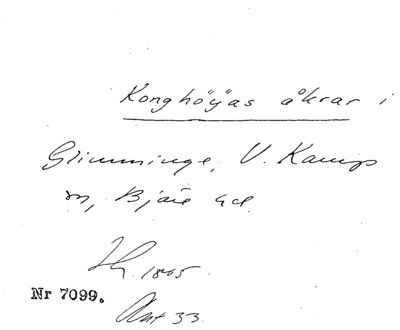 Konghöÿas åkrar i
Grimminge, V. Karups
sn, Bjäre hd.
1805.
Nr 7099.
Akt 33.